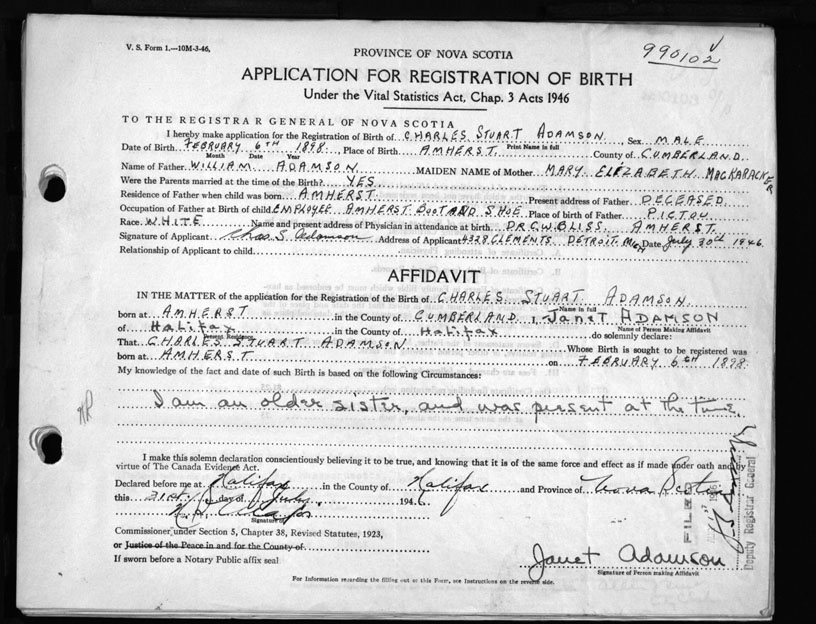 V. S. Form 1.—10M-3-46.
990102
PROVINCE OF NOVA SCOTIA
APPLICATION FOR REGISTRATION OF BIRTH
Under the Vital Statistics Act, Chap. 3 Acts 1946
TO THE REGISTRAR GENERAL OF NOVA SCOTIA
I hereby make application for the Registration of Birth of CHARLES STUART ADAMSON Sex MALE
Print Name in full
Date of Birth FEBRUARY 6TH 1898 Place of Birth AMHERST County of CUMBERLAND
Month Date Year
Name of Father WILLIAM ADAMSON MAIDEN NAME of Mother MARY ELIZABETH MACKARACKER
Were the Parents married at the time of the Birth? YES
Residence of Father when child was born AMHERST Present address of Father DECEASED
Occupation of Father at Birth of child EMPLOYEE AMHERST BOOT AND SHOE Place of birth of Father PICTOU
Race WHITE Name and present address of Physician in attendance at birth DR. C.W. BLISS, AMHERST
Signature of Applicant Chas S. Adamson Address of Applicant 4328 CLEMENTS DETROIT MICH Date July 30th 1946
Relationship of Applicant to child
AFFIDAVIT
IN THE MATTER of the application for the Registration of the Birth of CHARLES STUART ADAMSON
Name in full
born at AMHERST in the County of CUMBERLAND I, JANET ADAMSON
Name of Person Making Affidavit
of Halifax in the County of Halifax do solemnly declare:
Present Residence
That CHARLES STUART ADAMSON Whose Birth is sought to be registered was
born at AMHERST on FEBRUARY 6TH 1898
My knowledge of the fact and date of such Birth is based on the following Circumstances:
I am an older sister, and was present at the time.
I make this solemn declaration conscientiously believing it to be true, and knowing that it is of the same force and effect as if made under oath and by
virtue of The Canada Evidence Act.
Declared before me at Halifax in the County of Halifax and Province of Nova Scotia
this 31st day of July 1946
Signature of
Commissioner under Section 5, Chapter 38, Revised Statutes, 1923,
or Justice of the Peace in and for the County of
If sworn before a Notary Public affix seal
Janet Adamson
Signature of Person making Affidavit
For Information regarding the filling out of this Form, see Instructions on the reverse side.
FILED
Deputy Registrar General